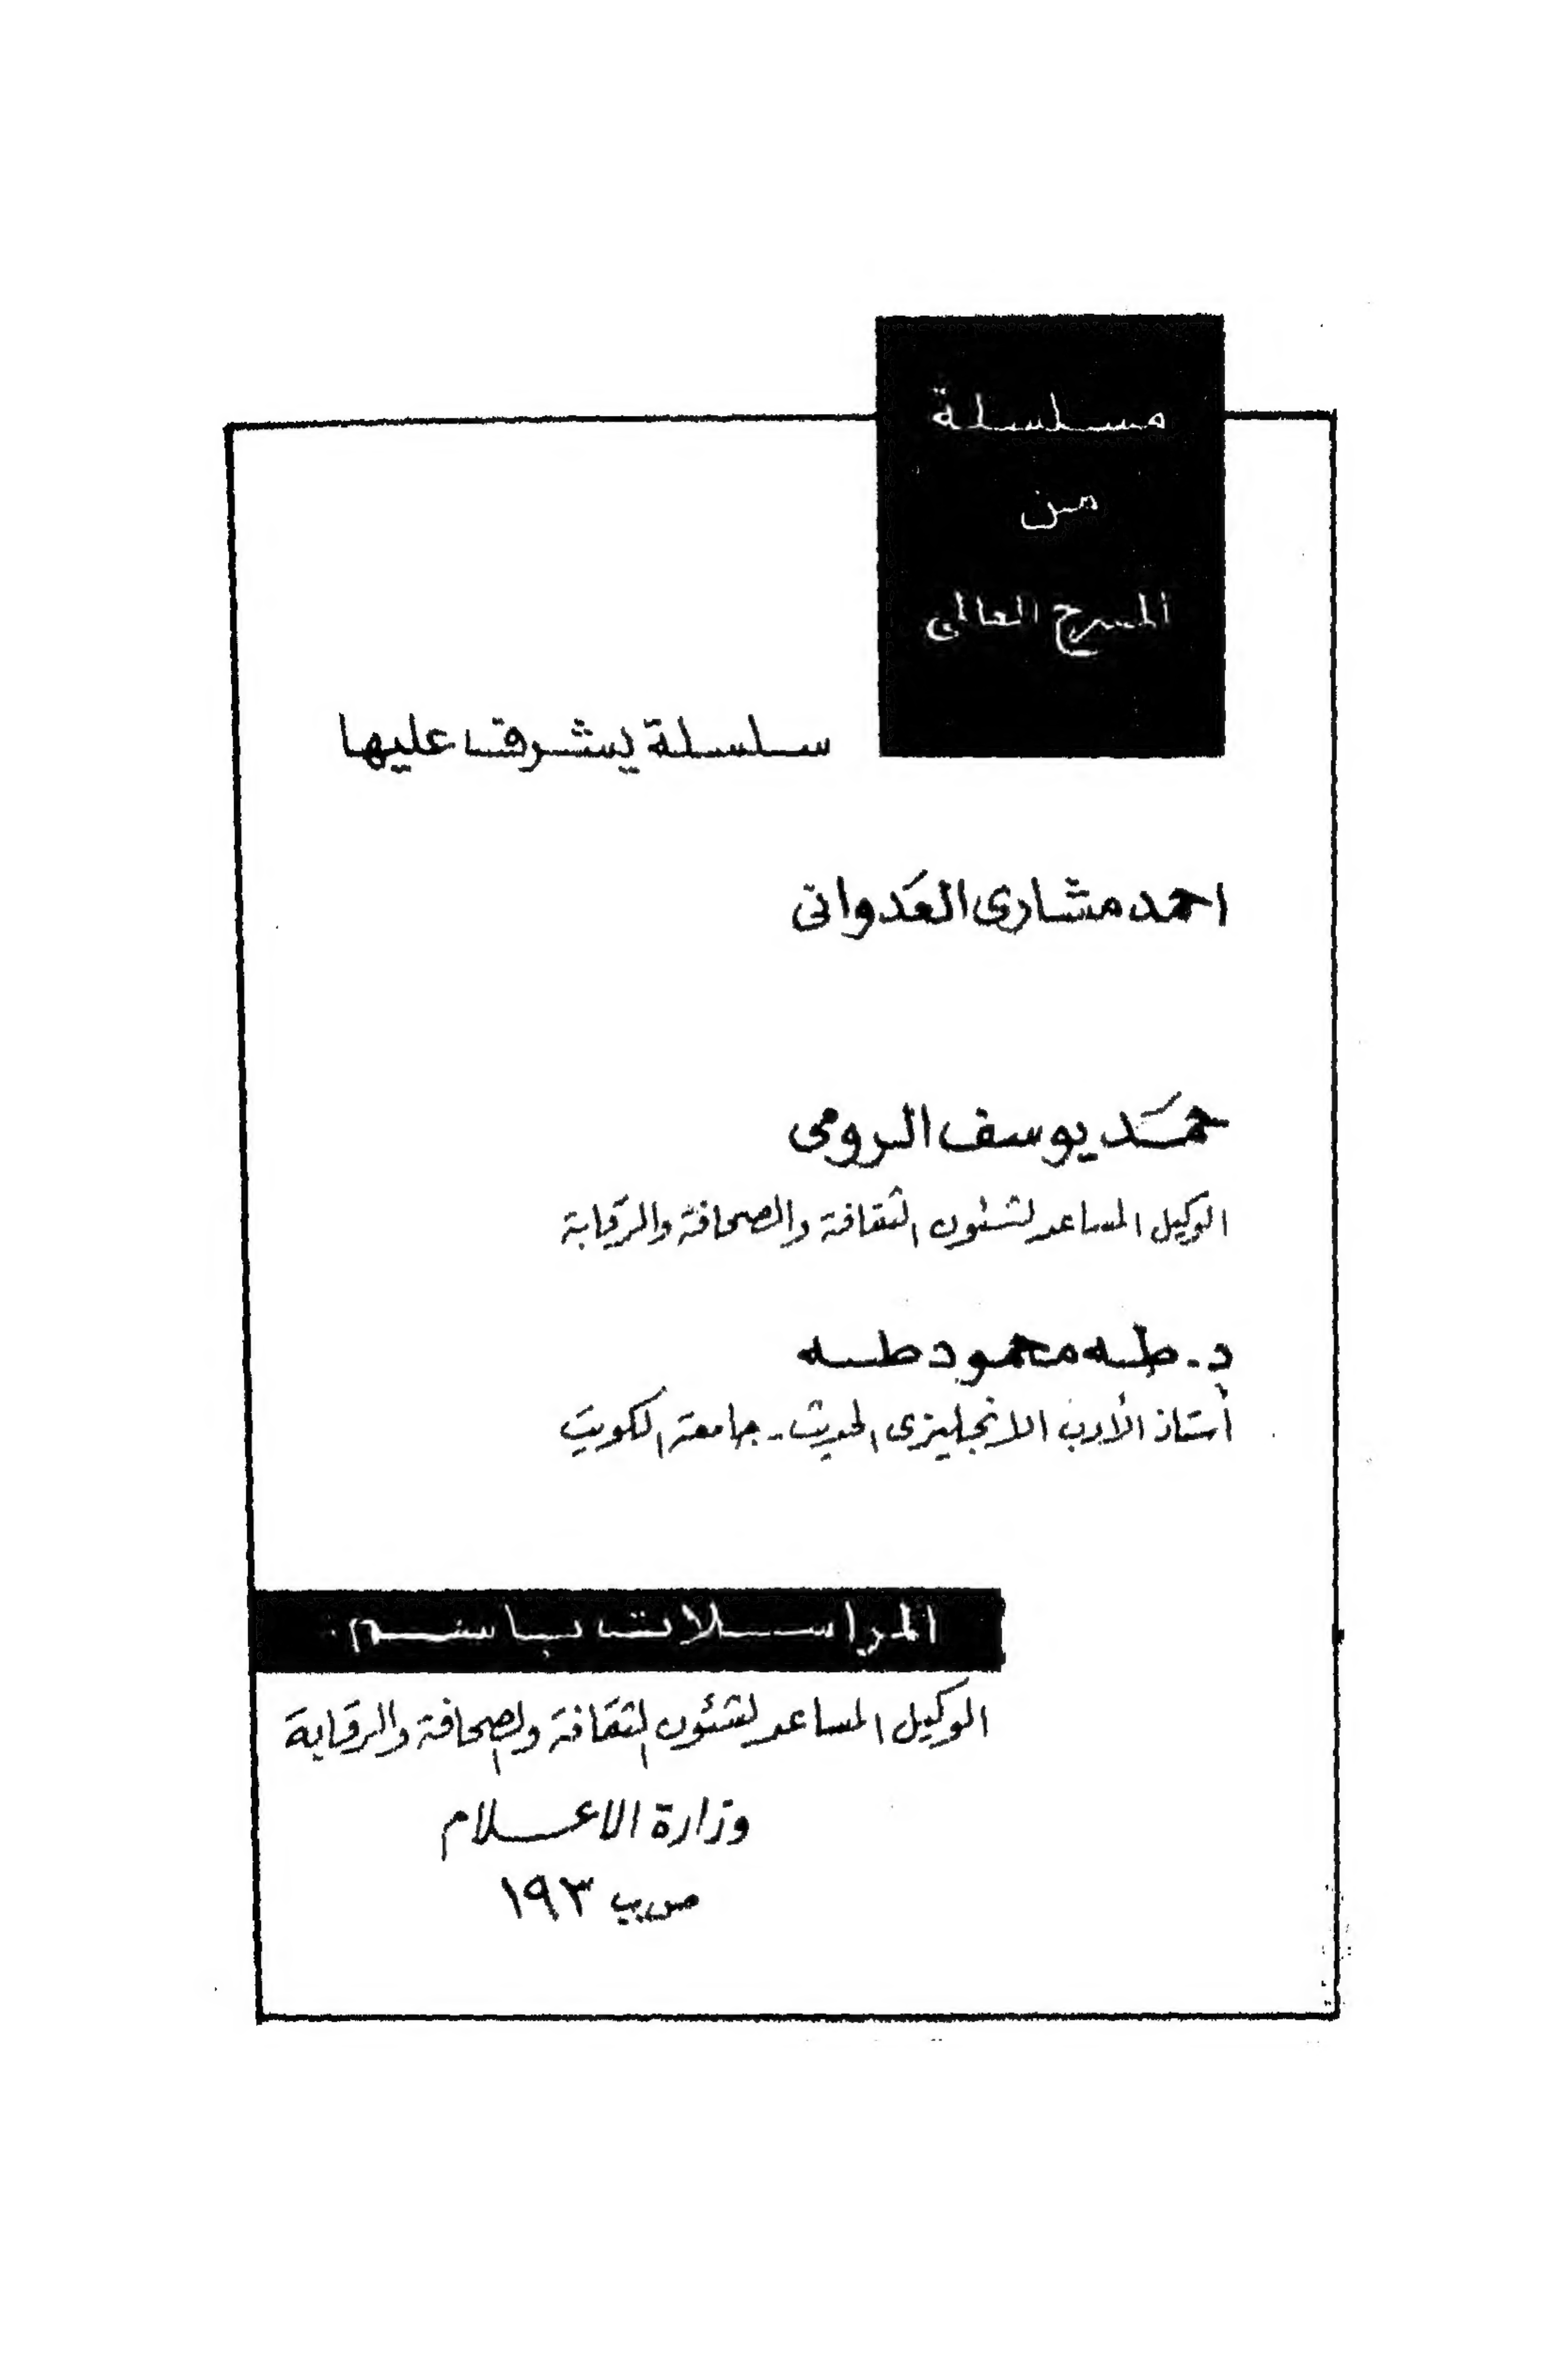 مسلسلة
من
المسرح العالمى
سلسلة يشرف عليها
احمد مشارى العدوانى
حمد يوسف الرومى
الوكيل المساعد لشئون الثقافة والصحافة والرقابة
د. طه محمود طه
أستاذ الأدب الانجليزى الحديث - جامعة الكويت
المراسلات باسم :
الوكيل المساعد لشئون الثقافة والصحافة والرقابة
وزارة الاعلام
ص.ب ١٩٣